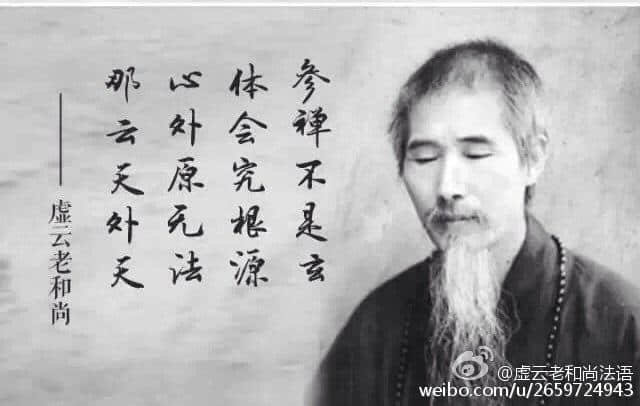 参禅不是玄
体会究根源
心外原无法
那云天外天
——虚云老和尚
@虚云老和尚法语
weibo.com/u/2659724943